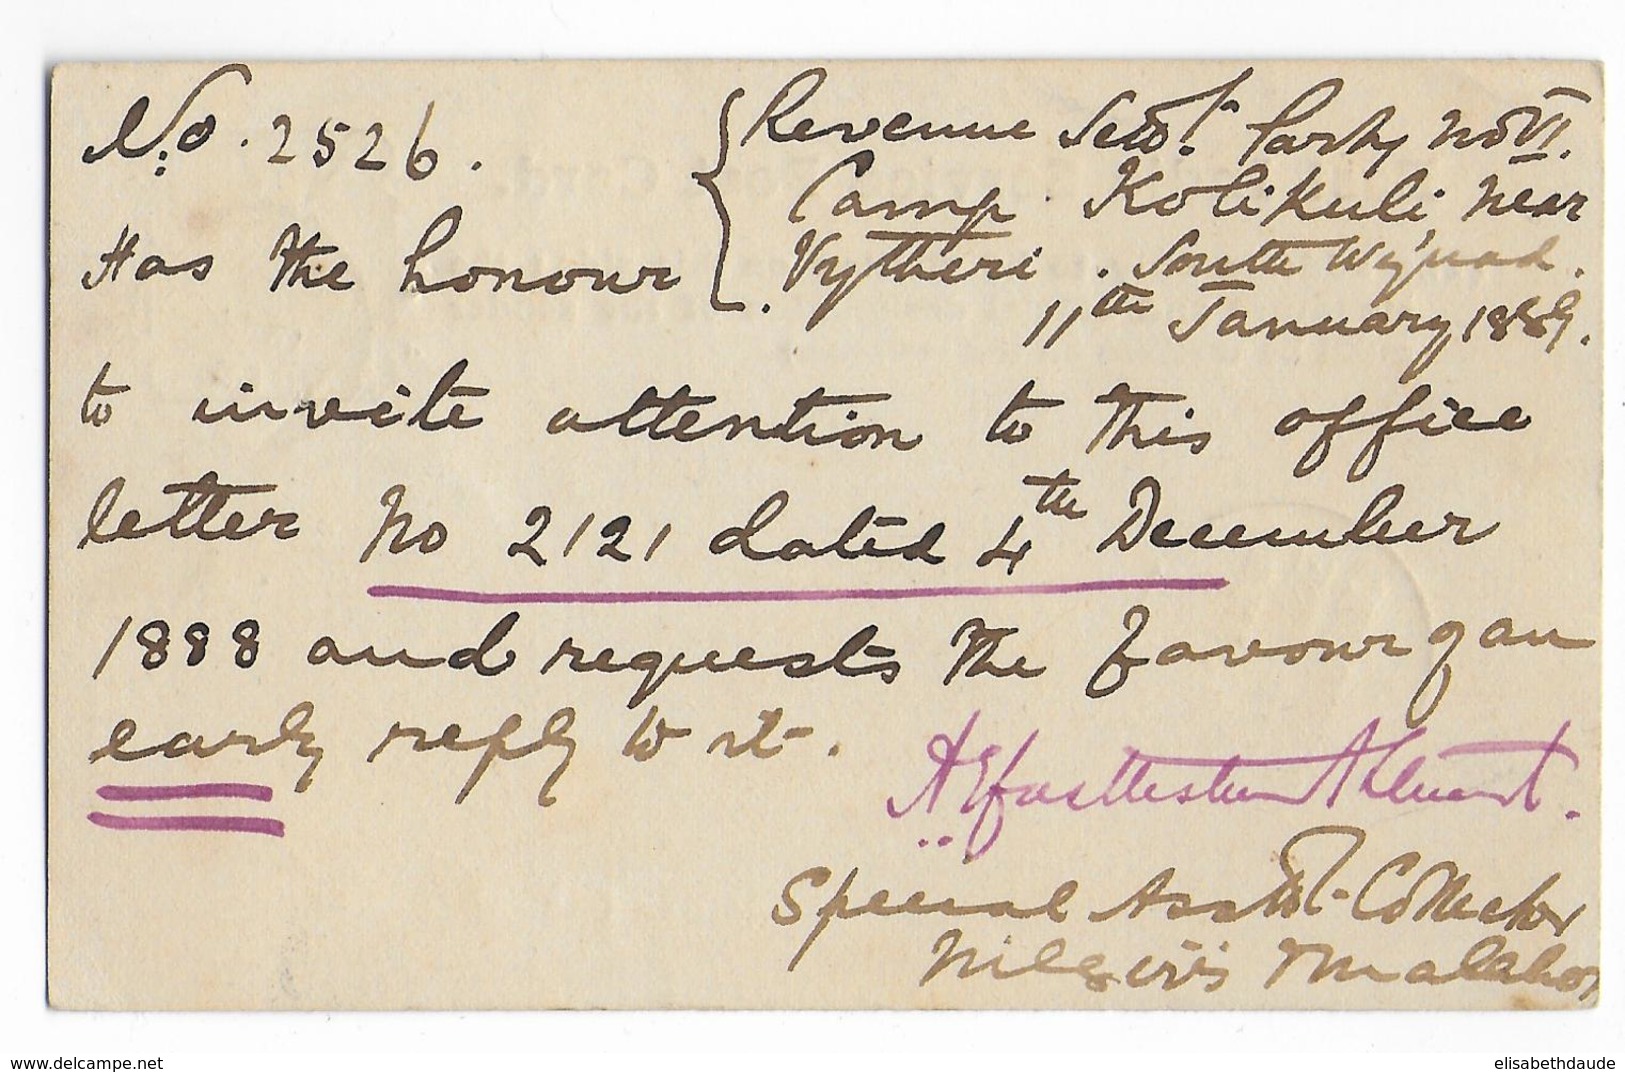 No. 2526.
Revenue Settt. Party No VI.
Camp Kolikuli, near
Vytheri. South Wynaad.
11th January 1889.
Has the honour
to invite attention to this office
letter No 2121 dated 4th December
1888 and requests the favour of an
early reply to it.
Special Asstt. Collector
Nilgiris & Malabar
delcampe.net
elisabethdaude